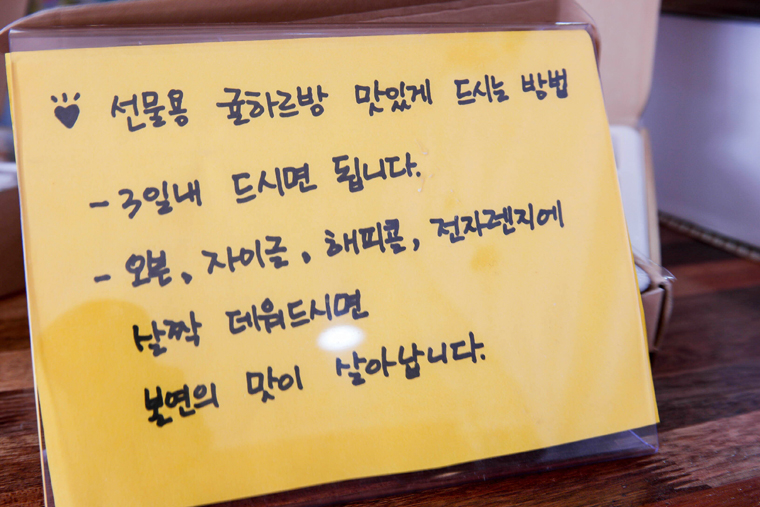 선물용 귤하르방 맛있게 드시는 방법
- 3일내 드시면 됩니다.
- 오븐, 자이글, 해피콜, 전자렌지에
살짝 데워드시면
본연의 맛이 살아납니다.